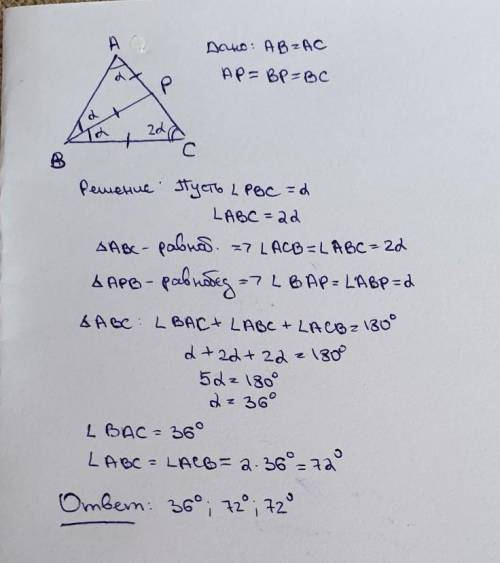 A
Дано: AB=AC
AP=BP=BC
α
P
α
α
2α
B
C
Решение: Пусть ∠PBC=α
∠ABC=2α
△ABC-равноб. => ∠ACB=∠ABC=2α
△APB-равнобед => ∠BAP=∠ABP=α
△ABC: ∠BAC+∠ABC+∠ACB=180°
α+2α+2α=180°
5α=180°
α=36°
∠BAC=36°
∠ABC=∠ACB=2·36°=72°
Ответ: 36°; 72°; 72°